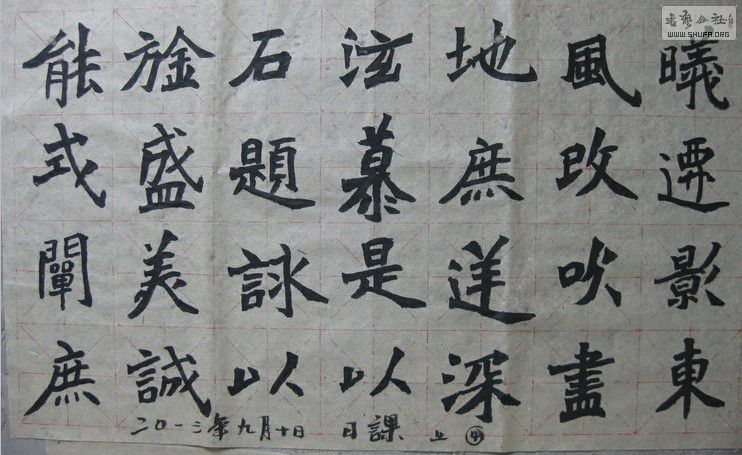 曦遷影東
風改吹盡
地庶深
泫慕是以
石題詠以
旌盛美誠
能式闡庶
二〇一三年九月十日 日課 上
书艺公社
WWW.SHUFA.ORG